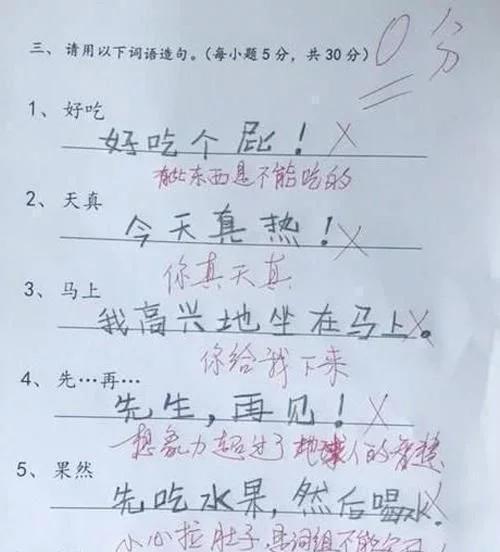 三、请用以下词语造句。(每小题5分，共30分) 0分
1、好吃
好吃个屁！
有些东西是不能吃的
2、天真
今天真热！
你真天真
3、马上
我高兴地坐在马上。
你给我下来
4、先…再…
先生，再见！
想象力超过了地球人的智慧
5、果然
先吃水果，然后喝水
小心拉肚子，是词组不能